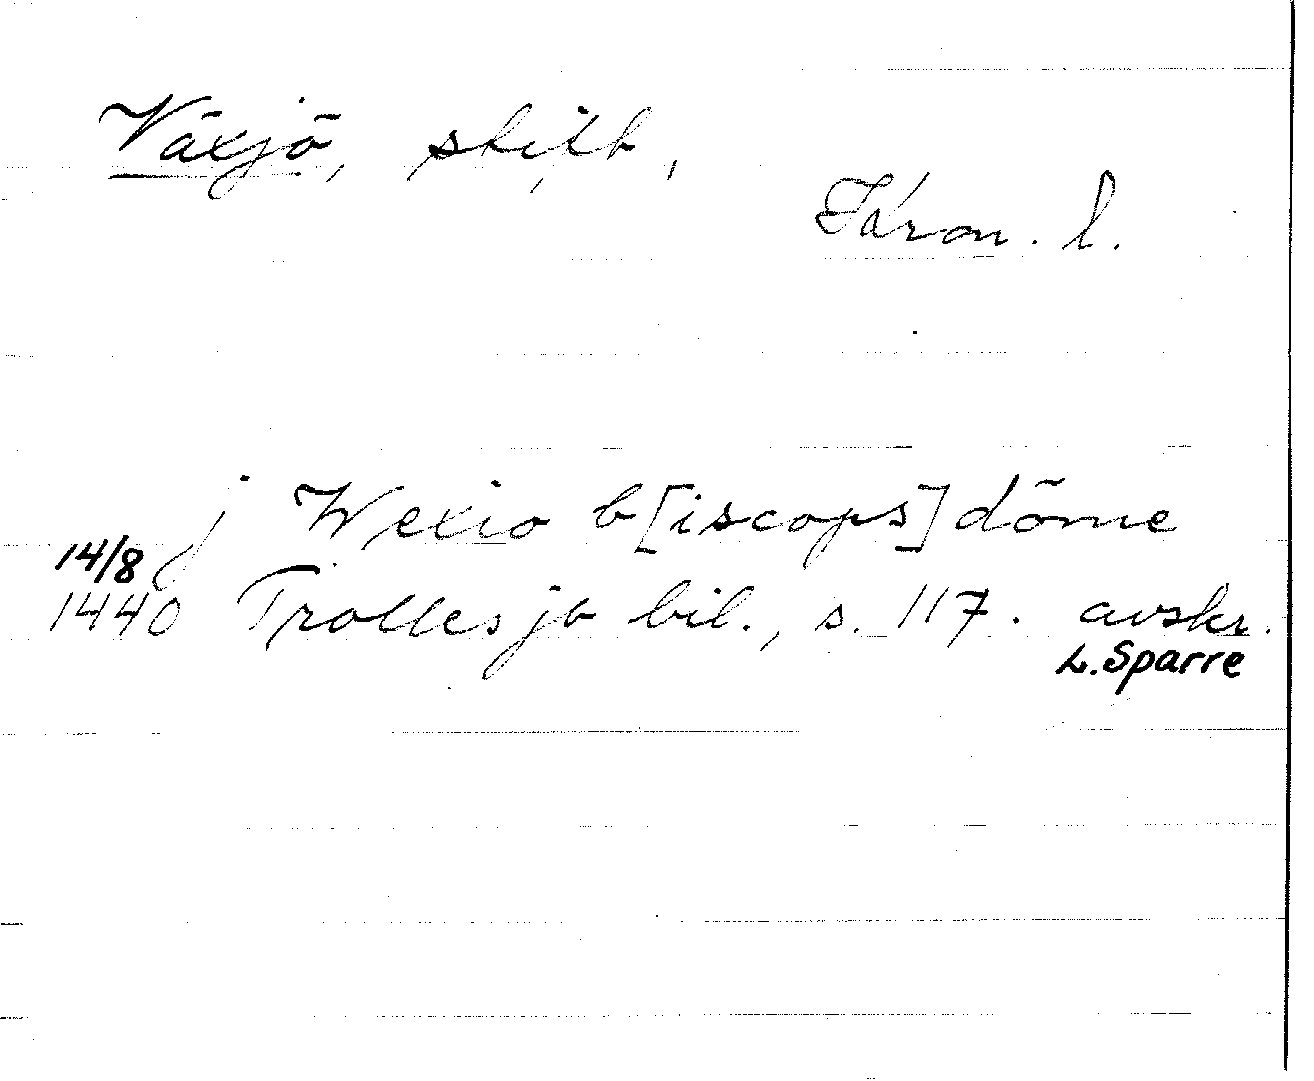 Växjö, stift,
Kron. l.
j Wexio b[iscops]döme
14/8
1440 Trolles jb bil., s. 117. avskr.
L. Sparre